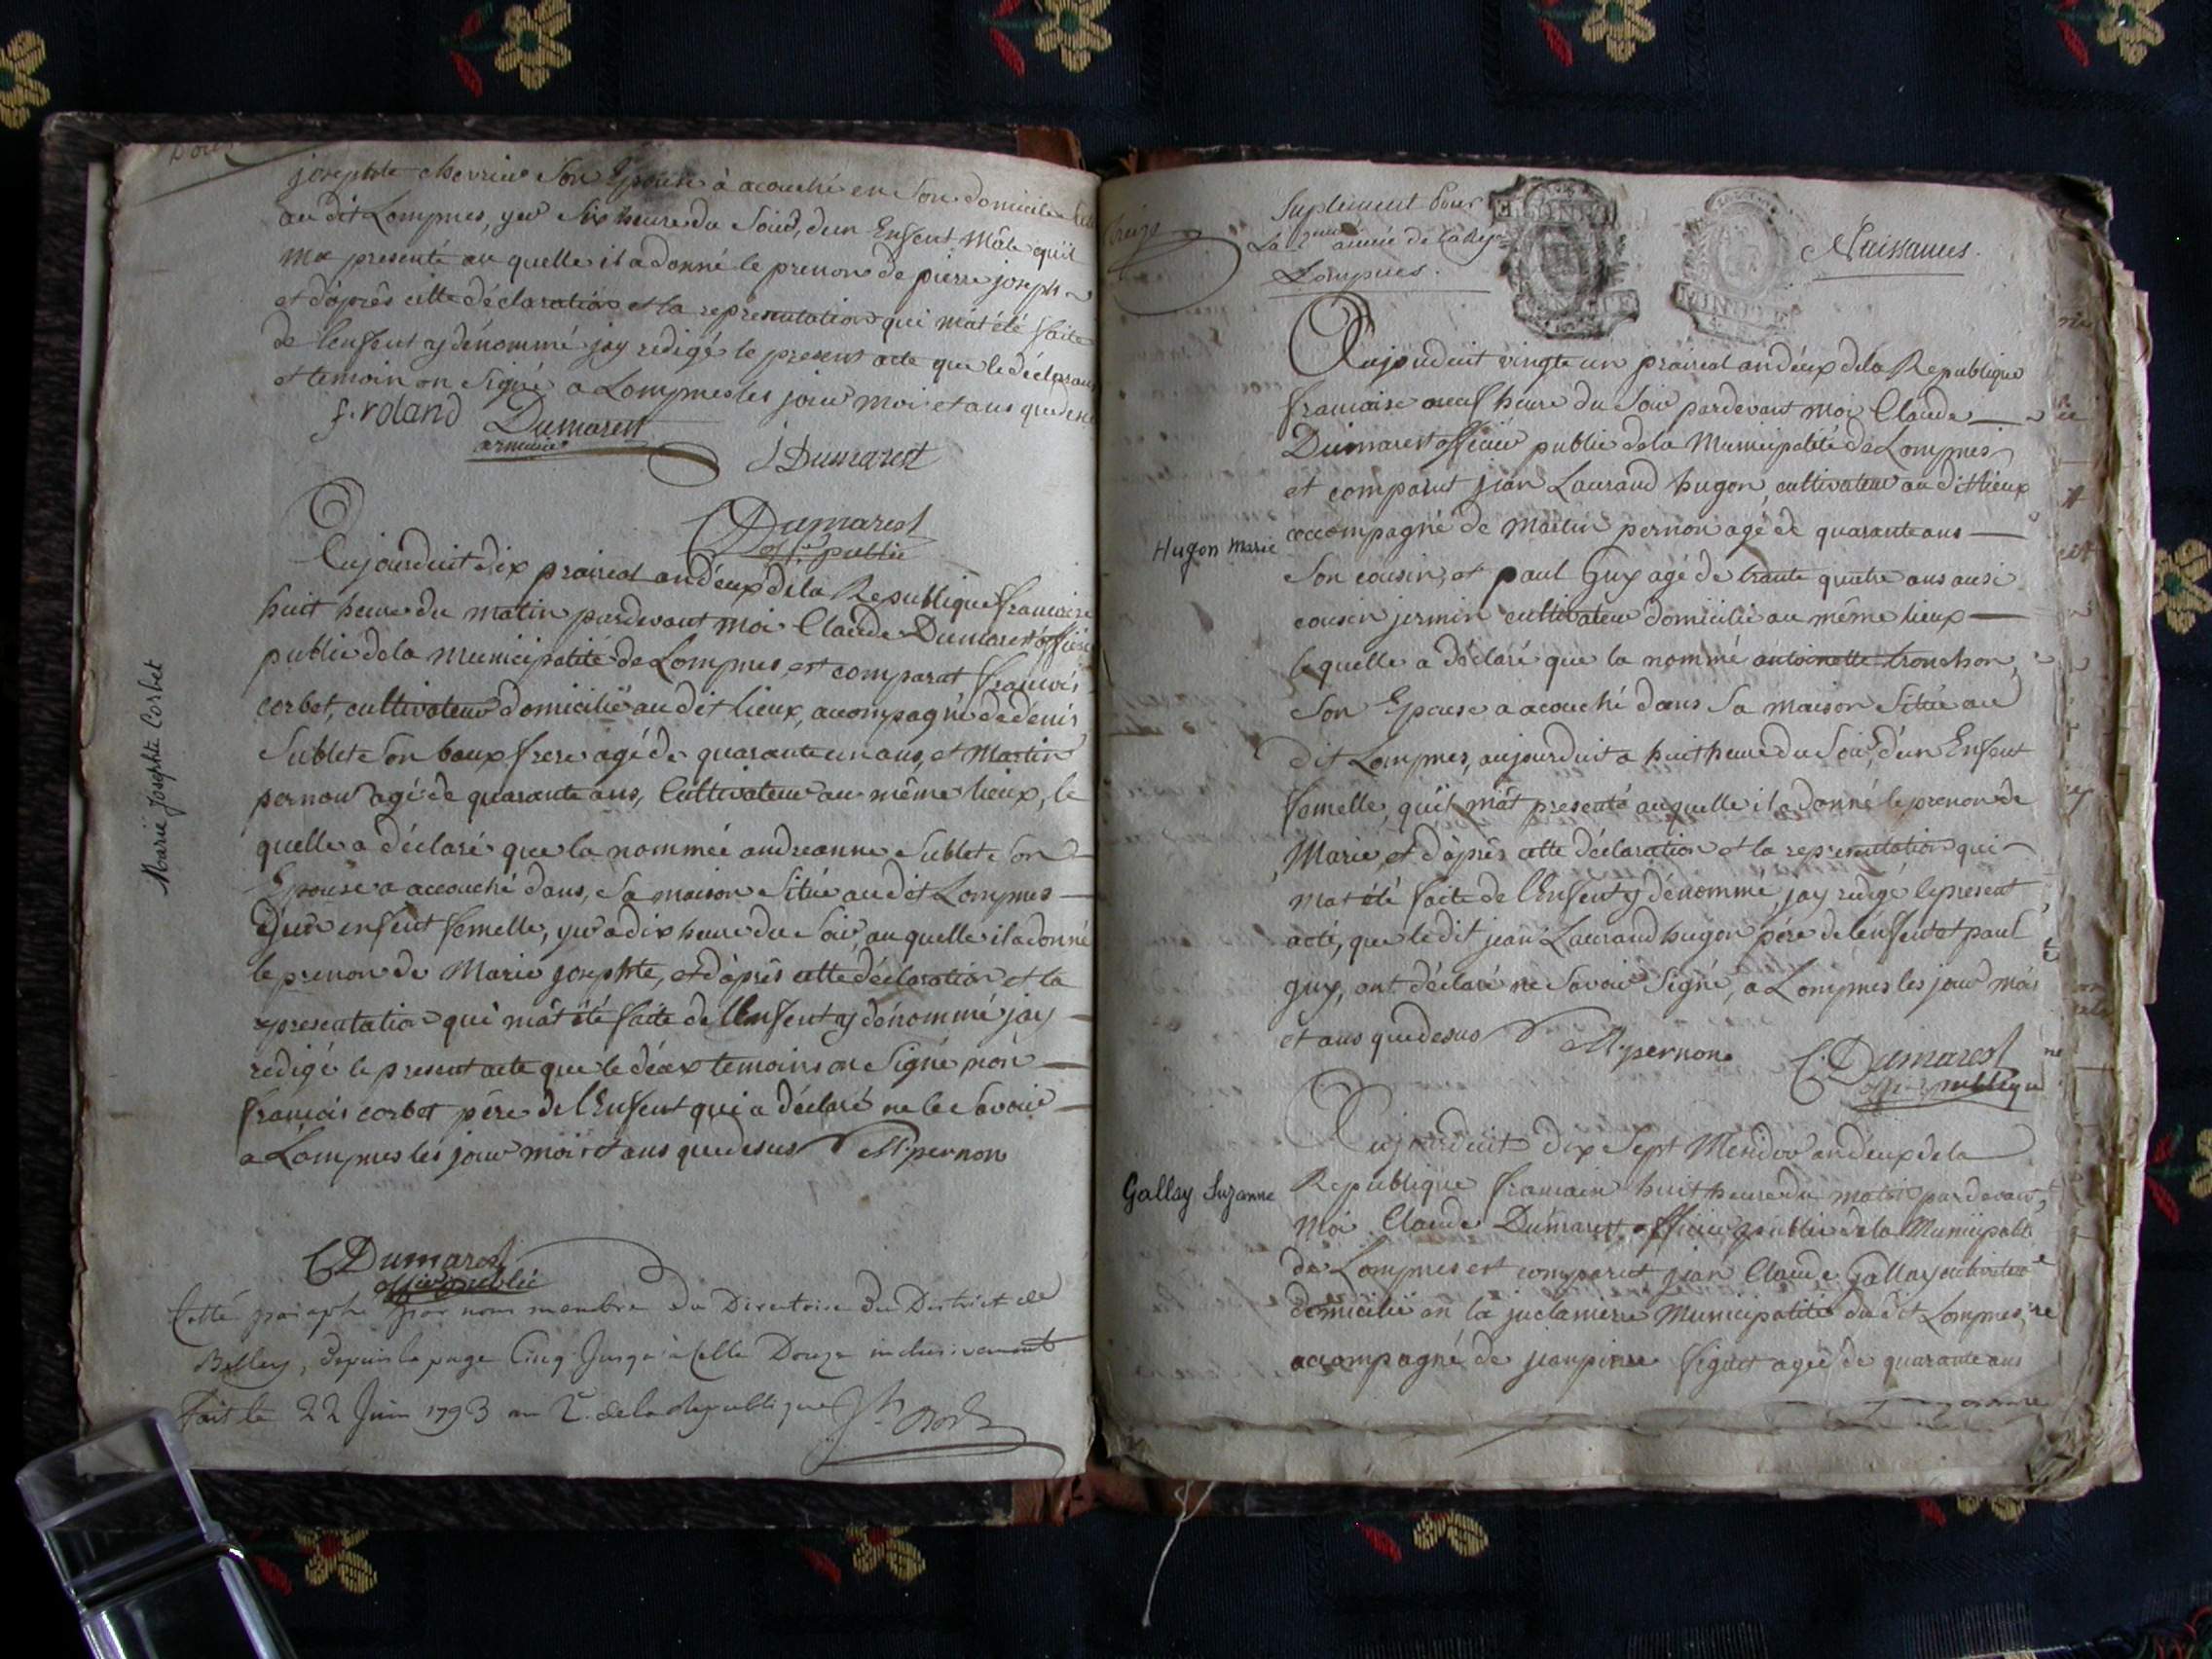 Douze
josephte chevrier Son Epouse à acouché en Son domicile
au dit Lompnes, yer Six heure du Soird, dun Enfent Mâle quil
Ma presenté au quelle il a donné le prenon de pierre joseph
et d'après cette déclaration et la representation qui mat été faite
de lenfent cy dénommé jay redigé le present acte que le déclarant
et temoin on Signé a Lompnes les jour moi et ans que desu
f. roland Dumarest
armurier
J Dumarest
C Dumarest
off. public
Aujourduit dix prairéal an déux de la Republique francaise
huit heure du matin pardevant moi Claude Dumarest officier
public de la municipalité de Lompnes est comparat francois
corbet, cultivateur domicilié au dit lieux, acompagné de dénis
Sublet Son baux frere agé de quarante un ans, et Martin
pernon agé de quarante ans, Cultivateur au même lieux, le
quelle a déclaré que la nommée andreanne Sublet Son
Epouse a accouché dans, Sa maison Situé au dit Lompnes
d'un enfent femelle, yer a dix heure du Soir, au quelle il a donné
le prenon de Marie josephte, et d'après cette déclaration et la
representation qui mât été faite de l'Enfent cy dénommé jay
redigé le present acte que le déux temoins on Signé non
francois corbet père de l'Enfent qui a déclaré ne le Savoir
a Lompnes les jour moi et ans que desus M. pernon
Marie Josephte Corbet
C Dumarest
officier public
Cotté paraphé par nous membre du Directoire du District de
Belley, depuis la page Cinq jusqu'à celle Douze inclusivement
fait le 22 Juin 1793 an 2e. de la Republique
treize
Suplement Pour
La 2eme année de la Rep
Lompnes.
Naissances.
Aujourduit vingte un prairéal an déux de la Republique
francaise neuf heure du Soir pardevant moi Claude
Dumarest officier public de la Municipalité de Lompnes
et comparut jean Laurand hugon, cultivateur au dit lieux
accompagné de Martin pernon agé de quarante ans
Hugon Marie
Son cousin, et paul Guy agé de trante quatre ans ausi
cousin jermin cultivateur domicilié au même lieux
le quelle a déclaré que la nommé antoinette tronchon
Son Epouse a acouché dans Sa maison Situé au
dit Lompnes, aujourduit a huit heure du Soir, d'un Enfent
femelle, quil mât presenté au quelle il a donné le prenon de
Marie, et d'après cette déclaration et la representation qui
mat été faite de l'Enfent cy dénommé, jay redigé le present
acte, que le dit jean Laurand hugon père de lénfent et paul
guy, ont déclaré ne Savoir Signé, a Lompnes les jour mois
et ans que desus M. pernon C. Dumarest
off. publique
Aujourduit dix Sept Mesidor an déux de la
Gallay Suzanne
Republique francaise huit heure du matin pardevant
Moi Claude Dumarest officier public de la Municipalité
de Lompnes est comparut jean Claude Gallay cultivateur
domicilié en la juclaniere Municipalité du dit Lompnes,
accompagné de jean pierre figuet agée de quarante ans